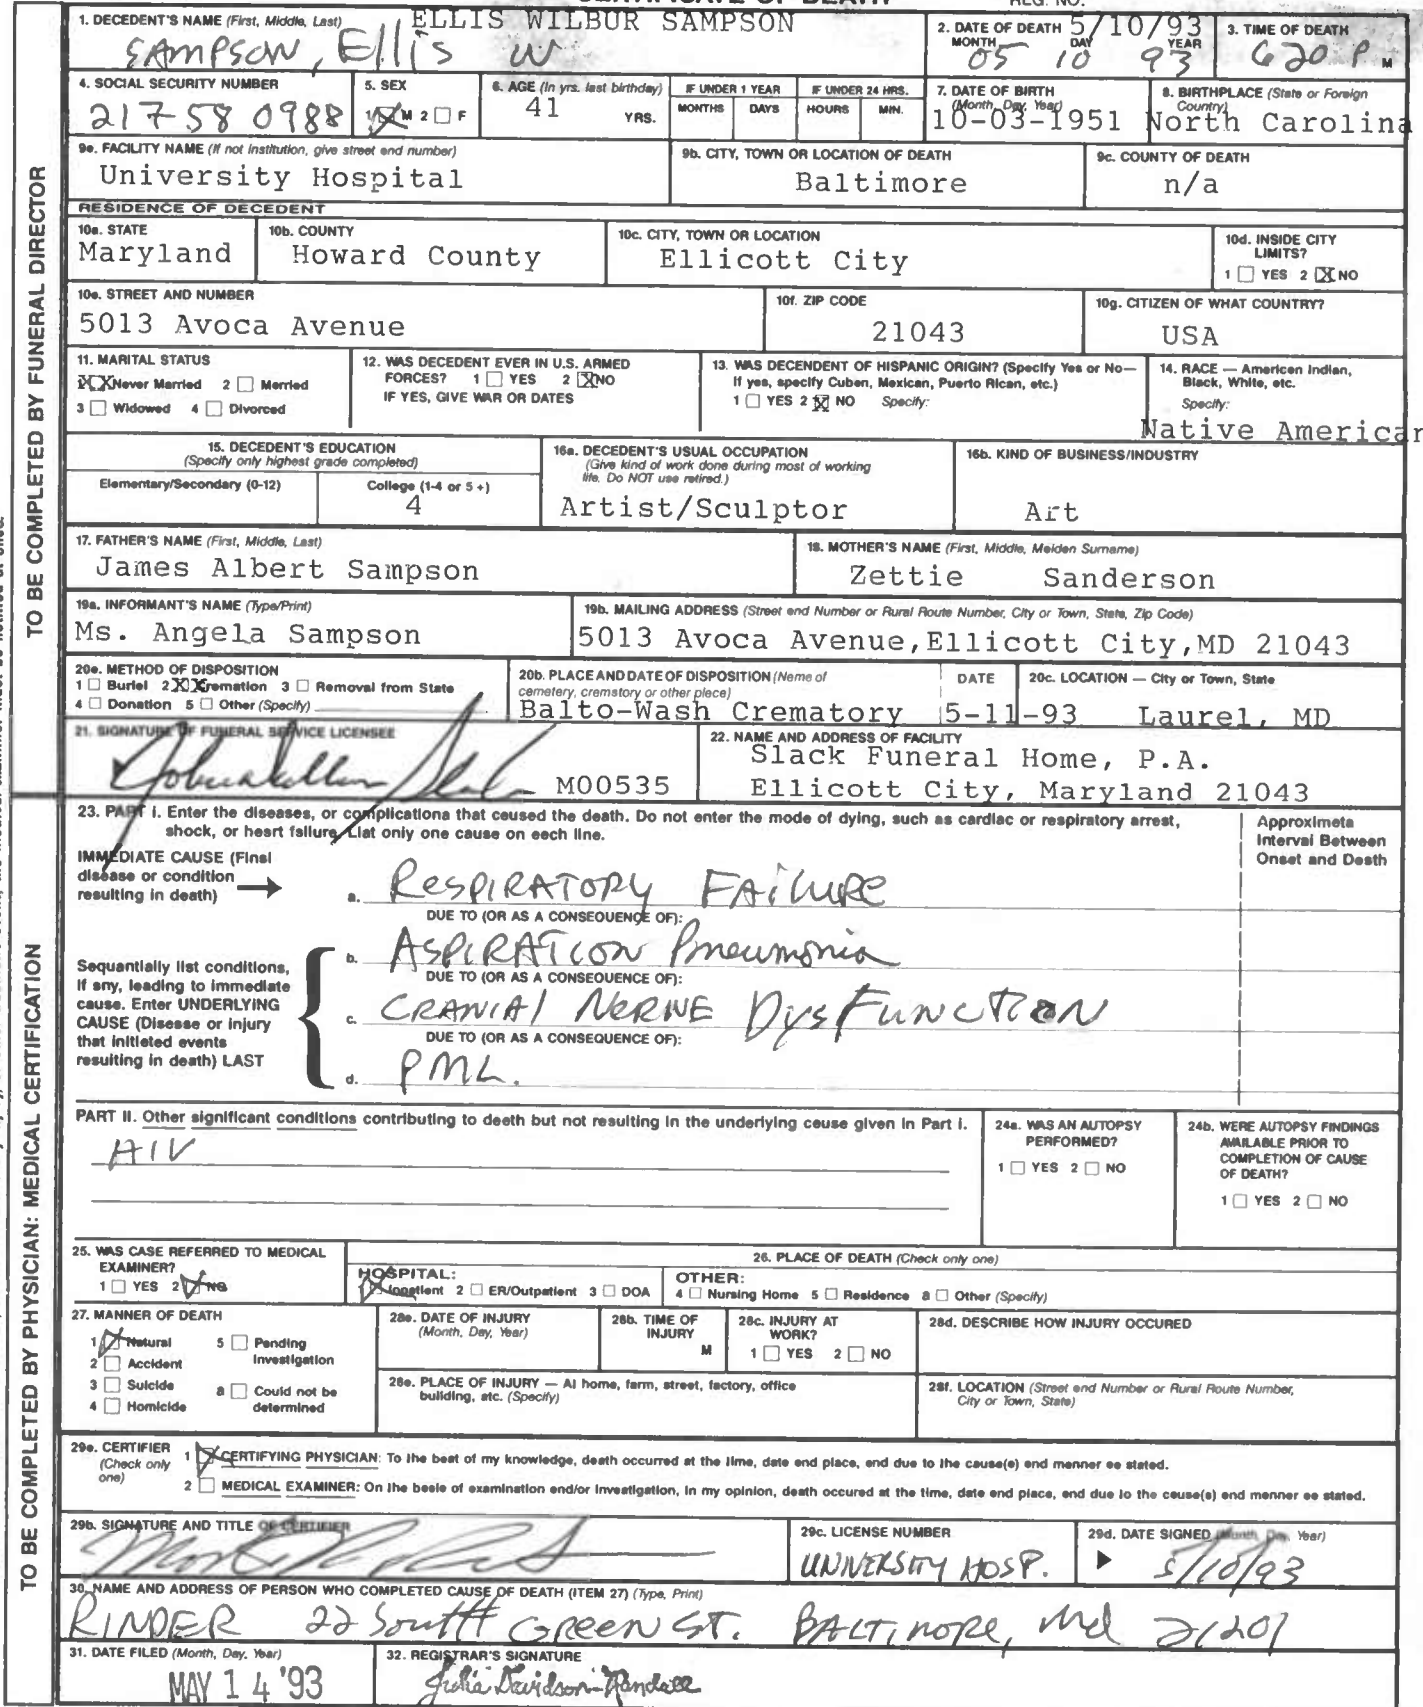 CERTIFICATE OF DEATH
REG. NO.
1. DECEDENT'S NAME (First, Middle, Last) ELLIS WILBUR SAMPSON
SAMPSON, Ellis W
2. DATE OF DEATH 5/10/93
MONTH DAY YEAR
05 10 93
3. TIME OF DEATH
620 P M
4. SOCIAL SECURITY NUMBER
217 58 0988
5. SEX
1 M 2 F
6. AGE (In yrs. last birthday)
41 YRS.
IF UNDER 1 YEAR
MONTHS DAYS
IF UNDER 24 HRS.
HOURS MIN.
7. DATE OF BIRTH
(Month, Day, Year)
10-03-1951
8. BIRTHPLACE (State or Foreign
Country)
North Carolina
9a. FACILITY NAME (If not institution, give street and number)
University Hospital
9b. CITY, TOWN OR LOCATION OF DEATH
Baltimore
9c. COUNTY OF DEATH
n/a
RESIDENCE OF DECEDENT
10a. STATE
Maryland
10b. COUNTY
Howard County
10c. CITY, TOWN OR LOCATION
Ellicott City
10d. INSIDE CITY
LIMITS?
1 YES 2 X NO
10e. STREET AND NUMBER
5013 Avoca Avenue
10f. ZIP CODE
21043
10g. CITIZEN OF WHAT COUNTRY?
USA
11. MARITAL STATUS
XX Never Married 2 Married
3 Widowed 4 Divorced
12. WAS DECEDENT EVER IN U.S. ARMED
FORCES? 1 YES 2 X NO
IF YES, GIVE WAR OR DATES
13. WAS DECENDENT OF HISPANIC ORIGIN? (Specify Yes or No—
If yes, specify Cuban, Mexican, Puerto Rican, etc.)
1 YES 2 X NO Specify:
14. RACE — American Indian,
Black, White, etc.
Specify:
Native American
15. DECEDENT'S EDUCATION
(Specify only highest grade completed)
Elementary/Secondary (0-12)
College (1-4 or 5+)
4
16a. DECEDENT'S USUAL OCCUPATION
(Give kind of work done during most of working
life. Do NOT use retired.)
Artist/Sculptor
16b. KIND OF BUSINESS/INDUSTRY
Art
17. FATHER'S NAME (First, Middle, Last)
James Albert Sampson
18. MOTHER'S NAME (First, Middle, Maiden Surname)
Zettie Sanderson
19a. INFORMANT'S NAME (Type/Print)
Ms. Angela Sampson
19b. MAILING ADDRESS (Street and Number or Rural Route Number, City or Town, State, Zip Code)
5013 Avoca Avenue,Ellicott City,MD 21043
20a. METHOD OF DISPOSITION
1 Burial 2 XX Cremation 3 Removal from State
4 Donation 5 Other (Specify)
20b. PLACE AND DATE OF DISPOSITION (Name of
cemetery, crematory or other place)
Balto-Wash Crematory
DATE
5-11-93
20c. LOCATION — City or Town, State
Laurel, MD
21. SIGNATURE OF FUNERAL SERVICE LICENSEE
M00535
22. NAME AND ADDRESS OF FACILITY
Slack Funeral Home, P.A.
Ellicott City, Maryland 21043
TO BE COMPLETED BY FUNERAL DIRECTOR
23. PART I. Enter the diseases, or complications that caused the death. Do not enter the mode of dying, such as cardiac or respiratory arrest,
shock, or heart failure. List only one cause on each line.
Approximate
Interval Between
Onset and Death
IMMEDIATE CAUSE (Final
disease or condition
resulting in death)
a. RESPIRATORY FAILURE
DUE TO (OR AS A CONSEQUENCE OF):
b. ASPIRATION Pneumonia
DUE TO (OR AS A CONSEQUENCE OF):
c. CRANIAL NERVE DysFUNCTION
DUE TO (OR AS A CONSEQUENCE OF):
d. PML.
Sequentially list conditions,
if any, leading to immediate
cause. Enter UNDERLYING
CAUSE (Disease or injury
that initiated events
resulting in death) LAST
PART II. Other significant conditions contributing to death but not resulting in the underlying cause given in Part I.
HIV
24a. WAS AN AUTOPSY
PERFORMED?
1 YES 2 NO
24b. WERE AUTOPSY FINDINGS
AVAILABLE PRIOR TO
COMPLETION OF CAUSE
OF DEATH?
1 YES 2 NO
25. WAS CASE REFERRED TO MEDICAL
EXAMINER?
1 YES 2 NO
26. PLACE OF DEATH (Check only one)
HOSPITAL:
Inpatient 2 ER/Outpatient 3 DOA
OTHER:
4 Nursing Home 5 Residence 6 Other (Specify)
27. MANNER OF DEATH
1 Natural 5 Pending
Investigation
2 Accident
3 Suicide 6 Could not be
determined
4 Homicide
28a. DATE OF INJURY
(Month, Day, Year)
28b. TIME OF
INJURY
M
28c. INJURY AT
WORK?
1 YES 2 NO
28d. DESCRIBE HOW INJURY OCCURED
28e. PLACE OF INJURY — At home, farm, street, factory, office
building, etc. (Specify)
28f. LOCATION (Street and Number or Rural Route Number,
City or Town, State)
29a. CERTIFIER
(Check only
one)
1 CERTIFYING PHYSICIAN: To the best of my knowledge, death occurred at the time, date and place, and due to the cause(s) and manner as stated.
2 MEDICAL EXAMINER: On the basis of examination and/or investigation, in my opinion, death occured at the time, date and place, and due to the cause(s) and manner as stated.
29b. SIGNATURE AND TITLE OF CERTIFIER
29c. LICENSE NUMBER
UNIVERSITY HOSP.
29d. DATE SIGNED (Month, Day, Year)
5/10/93
30. NAME AND ADDRESS OF PERSON WHO COMPLETED CAUSE OF DEATH (ITEM 27) (Type, Print)
RINDER 22 South GREEN ST. BALTIMORE, Md 21201
31. DATE FILED (Month, Day, Year)
MAY 14 '93
32. REGISTRAR'S SIGNATURE
Julia Davidson-Randall
TO BE COMPLETED BY PHYSICIAN: MEDICAL CERTIFICATION